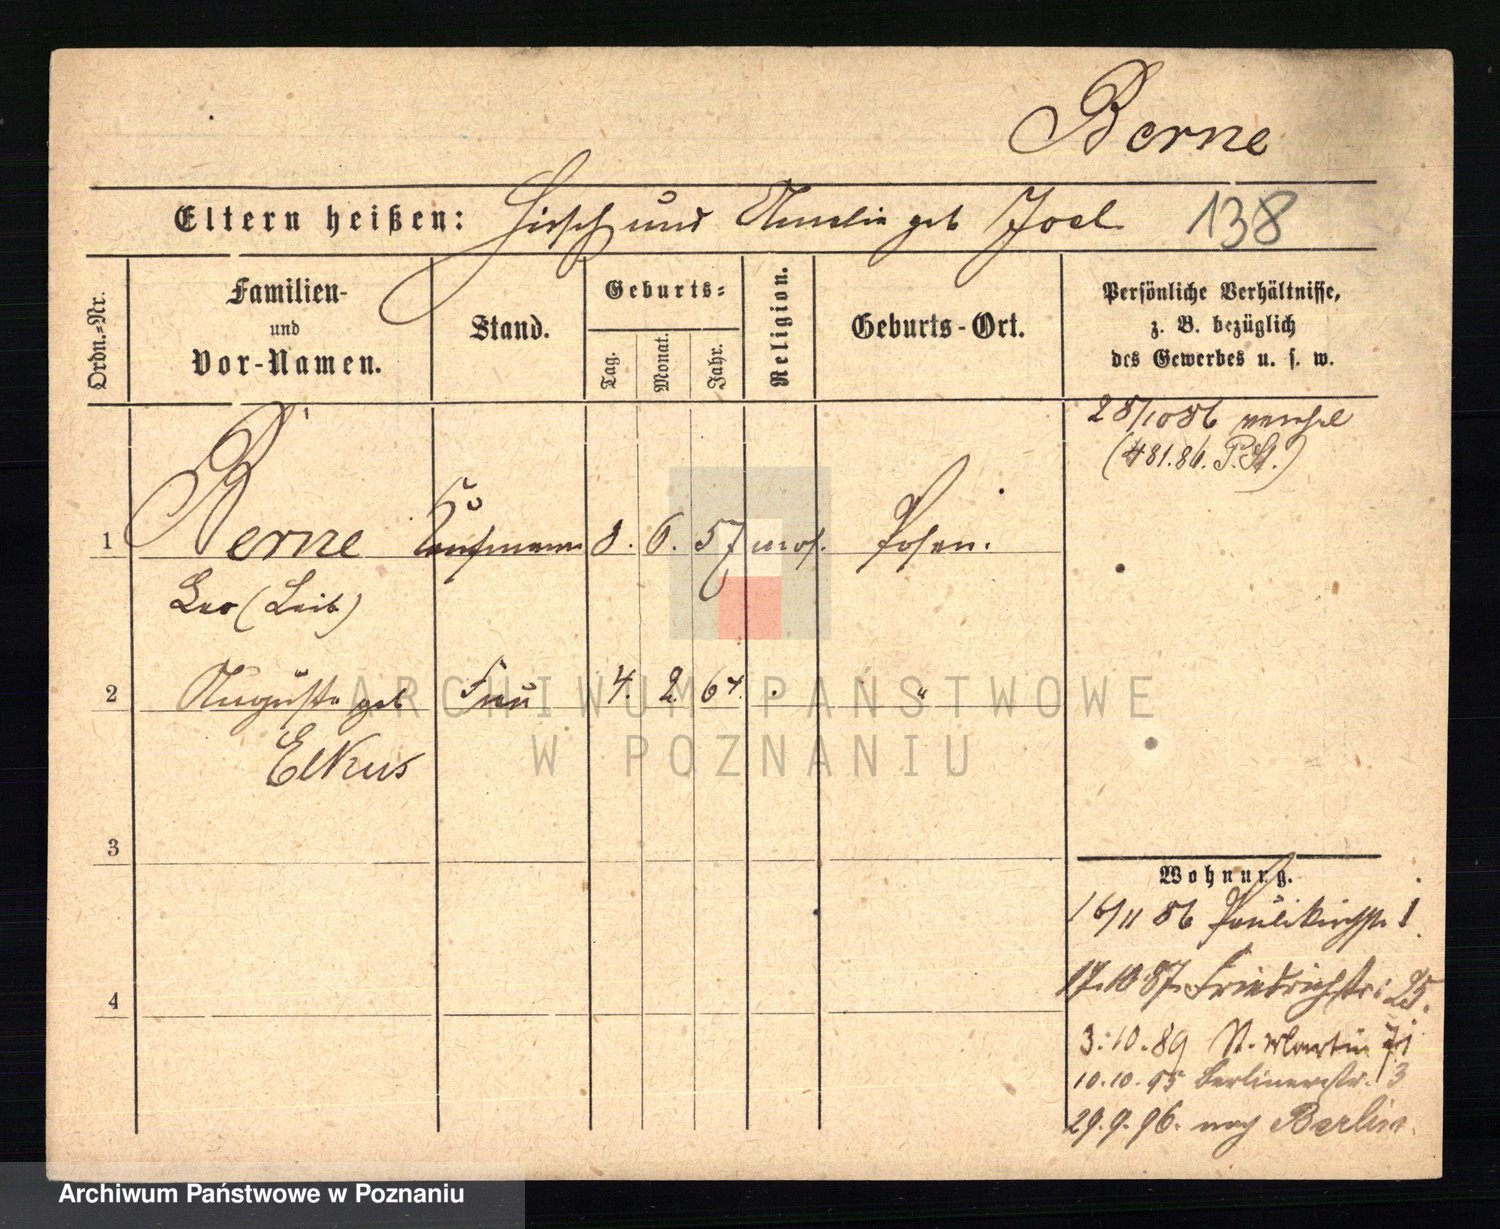 Berne
Eltern heißen: Hirsch und Amalie geb Joel 138
Ordn.-Nr.
Familien-
und
Vor-Namen.
Stand.
Geburts-
Tag.
Monat.
Jahr.
Religion.
Geburts-Ort.
Persönliche Verhältnisse,
z. B. bezüglich
des Gewerbes u. s. w.
28/10 86
(481.86. P. St.)
1 Berne Kaufmann 8. 6. 57 mos. Posen.
Leo (Leib)
2 Auguste geb Frau 4. 2. 64. " "
Elkus
3
4
Wohnung.
16/11 86 Paulikirchstr 1.
17.10 87. Friedrichstr: 25.
3.10.89 St. Martin 71
10.10.95 Berlinerstr. 3
29.9.96. nach Berlin.
ARCHIWUM PAŃSTWOWE
W POZNANIU
Archiwum Państwowe w Poznaniu